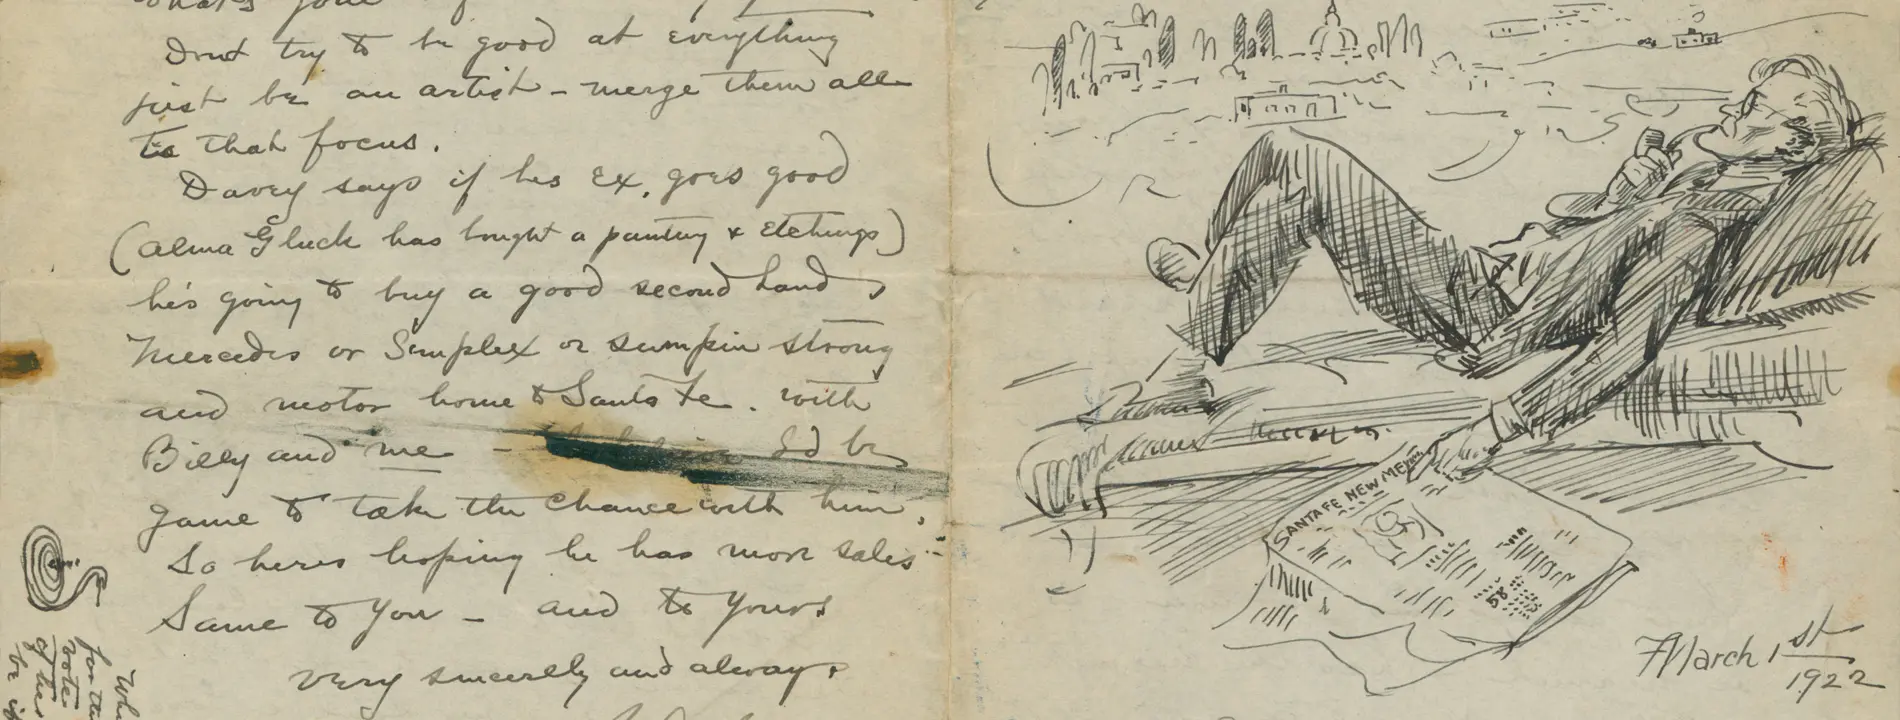 Dont try to be good at everything
just be an artist - merge them all
to that focus.
Davey says if his Ex. goes good
(Alma Gluck has bought a painting & Etchings)
he's going to buy a good second hand,
Mercedes or Simplex or sumpin strong
and motor home to Santa Fe. with
Billy and me - I'd be
game to take the chance with him.
So heres hoping he has more sales -
Same to You - and to Yours
very sincerely and always.
SANTA FE NEW MEX
March 1st
1922